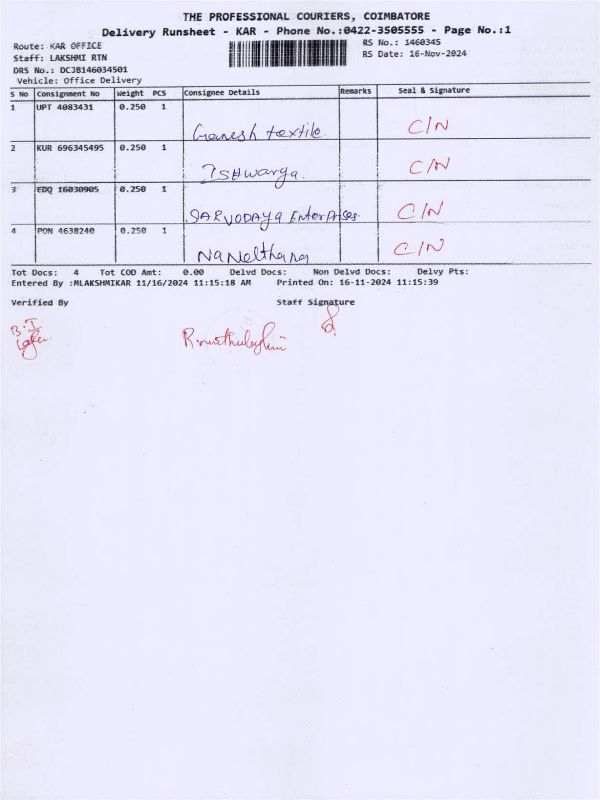 THE PROFESSIONAL COURIERS, COIMBATORE
Delivery Runsheet - KAR - Phone No.:0422-3505555 - Page No.:1
Route: KAR OFFICE RS No.: 1460345
Staff: LAKSHMI RTN RS Date: 16-Nov-2024
DRS No.: DCJB146034501
Vehicle: Office Delivery
S No Consignment No Weight PCS Consignee Details Remarks Seal & Signature
1 UPT 4083431 0.250 1
Ganesh textile. C/N
2 KUR 696345495 0.250 1
Ishwarya. C/N
3 EDQ 16030905 0.250 1
SARVODAYA Enterprises. C/N
4 PON 4638240 0.250 1
C/N
Tot Docs: 4 Tot COD Amt: 0.00 Delvd Docs: Non Delvd Docs: Delvy Pts:
Entered By :MLAKSHMIKAR 11/16/2024 11:15:18 AM Printed On: 16-11-2024 11:15:39
Verified By Staff Signature